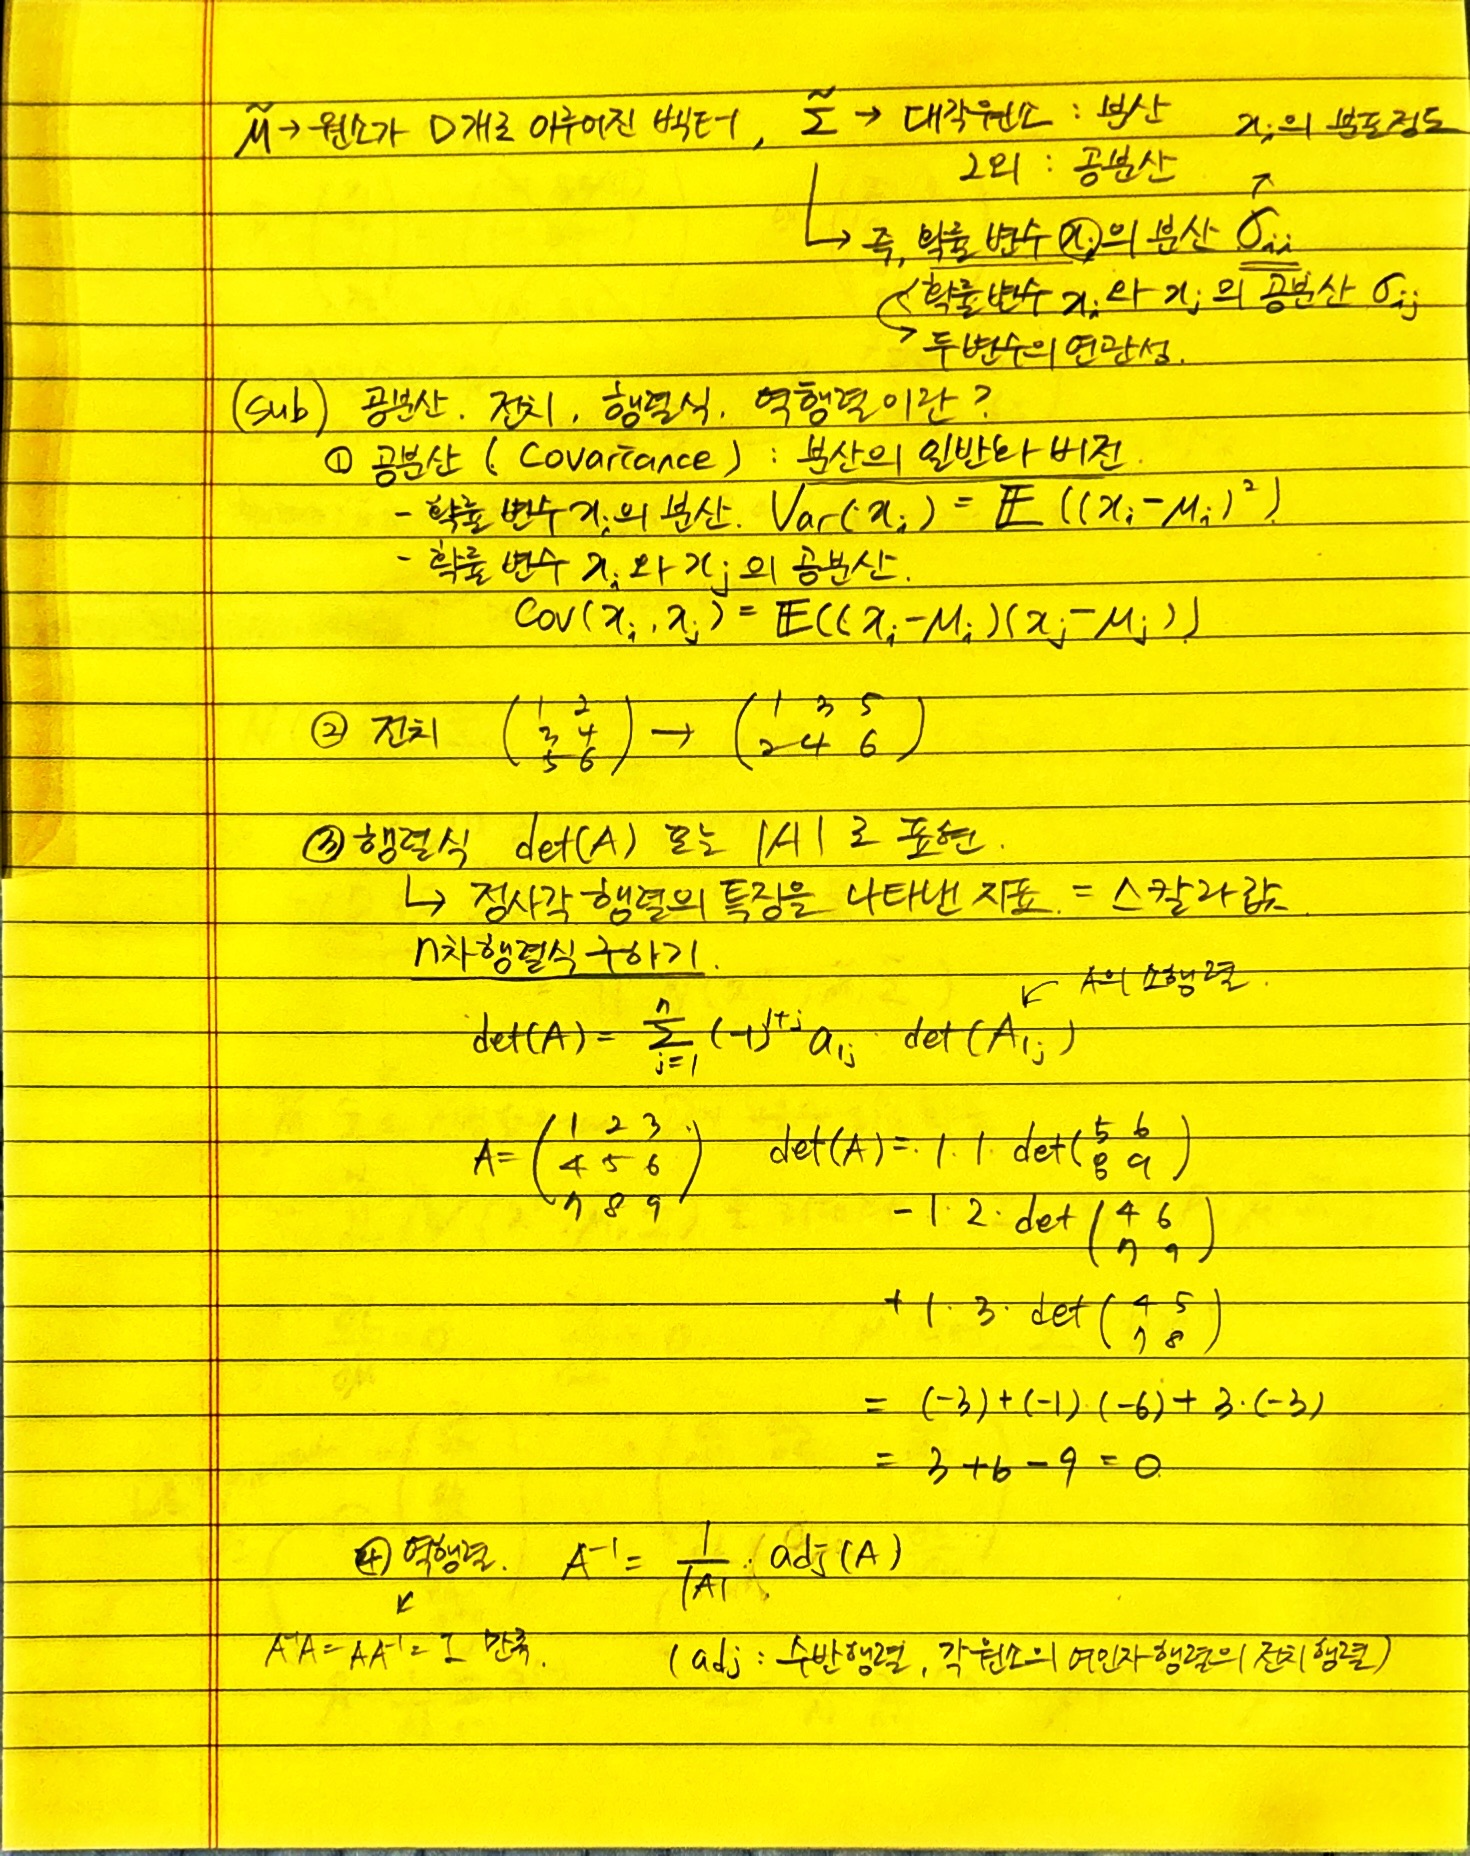 μ̃ → 원소가 D개로 이루어진 벡터, Σ̃ → 대각원소 : 분산 xᵢ의 분포정도
그외 : 공분산 ↑
↳ 즉, 확률 변수 xᵢ의 분산 σᵢᵢ
확률변수 xᵢ와 xⱼ의 공분산 σᵢⱼ
→ 두 변수의 연관성.
(sub) 공분산. 전치, 행렬식. 역행렬이란?
① 공분산 (Covariance) : 분산의 일반화 버전.
- 확률 변수 xᵢ의 분산. Var(xᵢ) = 𝔼((xᵢ-μᵢ)²)
- 확률 변수 xᵢ와 xⱼ의 공분산.
Cov(xᵢ, xⱼ) = 𝔼((xᵢ-μᵢ)(xⱼ-μⱼ))
② 전치 (1 2 / 3 4 / 5 6) → (1 3 5 / 2 4 6)
③ 행렬식 det(A) 또는 |A|로 표현.
↳ 정사각 행렬의 특징을 나타낸 지표. = 스칼라값.
n차행렬식 구하기.
↙ A의 소행렬.
det(A) = Σⱼ₌₁ⁿ (-1)¹⁺ʲ a₁ⱼ · det(A₁ⱼ)
A = (1 2 3 / 4 5 6 / 7 8 9) det(A) = 1·1·det(5 6 / 8 9)
-1·2·det(4 6 / 7 9)
+1·3·det(4 5 / 7 8)
= (-3)+(-1)·(-6)+3·(-3)
= 3+6-9 = 0
④ 역행렬. A⁻¹ = 1/|A| · adj(A)
↙
A⁻¹A = AA⁻¹ = I 만족. (adj : 수반행렬, 각 원소의 여인자 행렬의 전치 행렬)